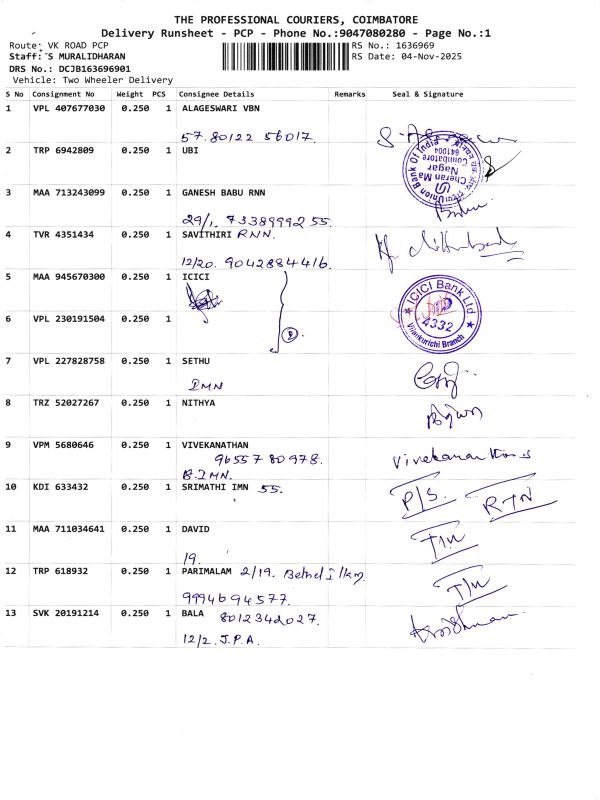 THE PROFESSIONAL COURIERS, COIMBATORE
Delivery Runsheet - PCP - Phone No.:9047080280 - Page No.:1
Route: VK ROAD PCP RS No.: 1636969
Staff: S MURALIDHARAN RS Date: 04-Nov-2025
DRS No.: DCJB163696901
Vehicle: Two Wheeler Delivery
S No Consignment No Weight PCS Consignee Details Remarks Seal & Signature
1 VPL 407677030 0.250 1 ALAGESWARI VBN
57. 80122 56017.
2 TRP 6942809 0.250 1 UBI
Union Bank Of India
Cheran Ma Nagar
Coimbatore
641004
3 MAA 713243099 0.250 1 GANESH BABU RNN
29/1, 73389992 55.
4 TVR 4351434 0.250 1 SAVITHIRI RNN.
12/20. 9042884416.
5 MAA 945670300 0.250 1 ICICI
ICICI Bank Ltd
4332
Vilankurichi Branch
6 VPL 230191504 0.250 1
2.
7 VPL 227828758 0.250 1 SETHU
IMN
8 TRZ 52027267 0.250 1 NITHYA
9 VPM 5680646 0.250 1 VIVEKANATHAN
9655780978.
B.IMN.
10 KDI 633432 0.250 1 SRIMATHI IMN 55.
P/S. RTN
11 MAA 711034641 0.250 1 DAVID
19.
12 TRP 618932 0.250 1 PARIMALAM 2/19.
9994694577.
13 SVK 20191214 0.250 1 BALA 8012342027.
12/2. J.P.A.